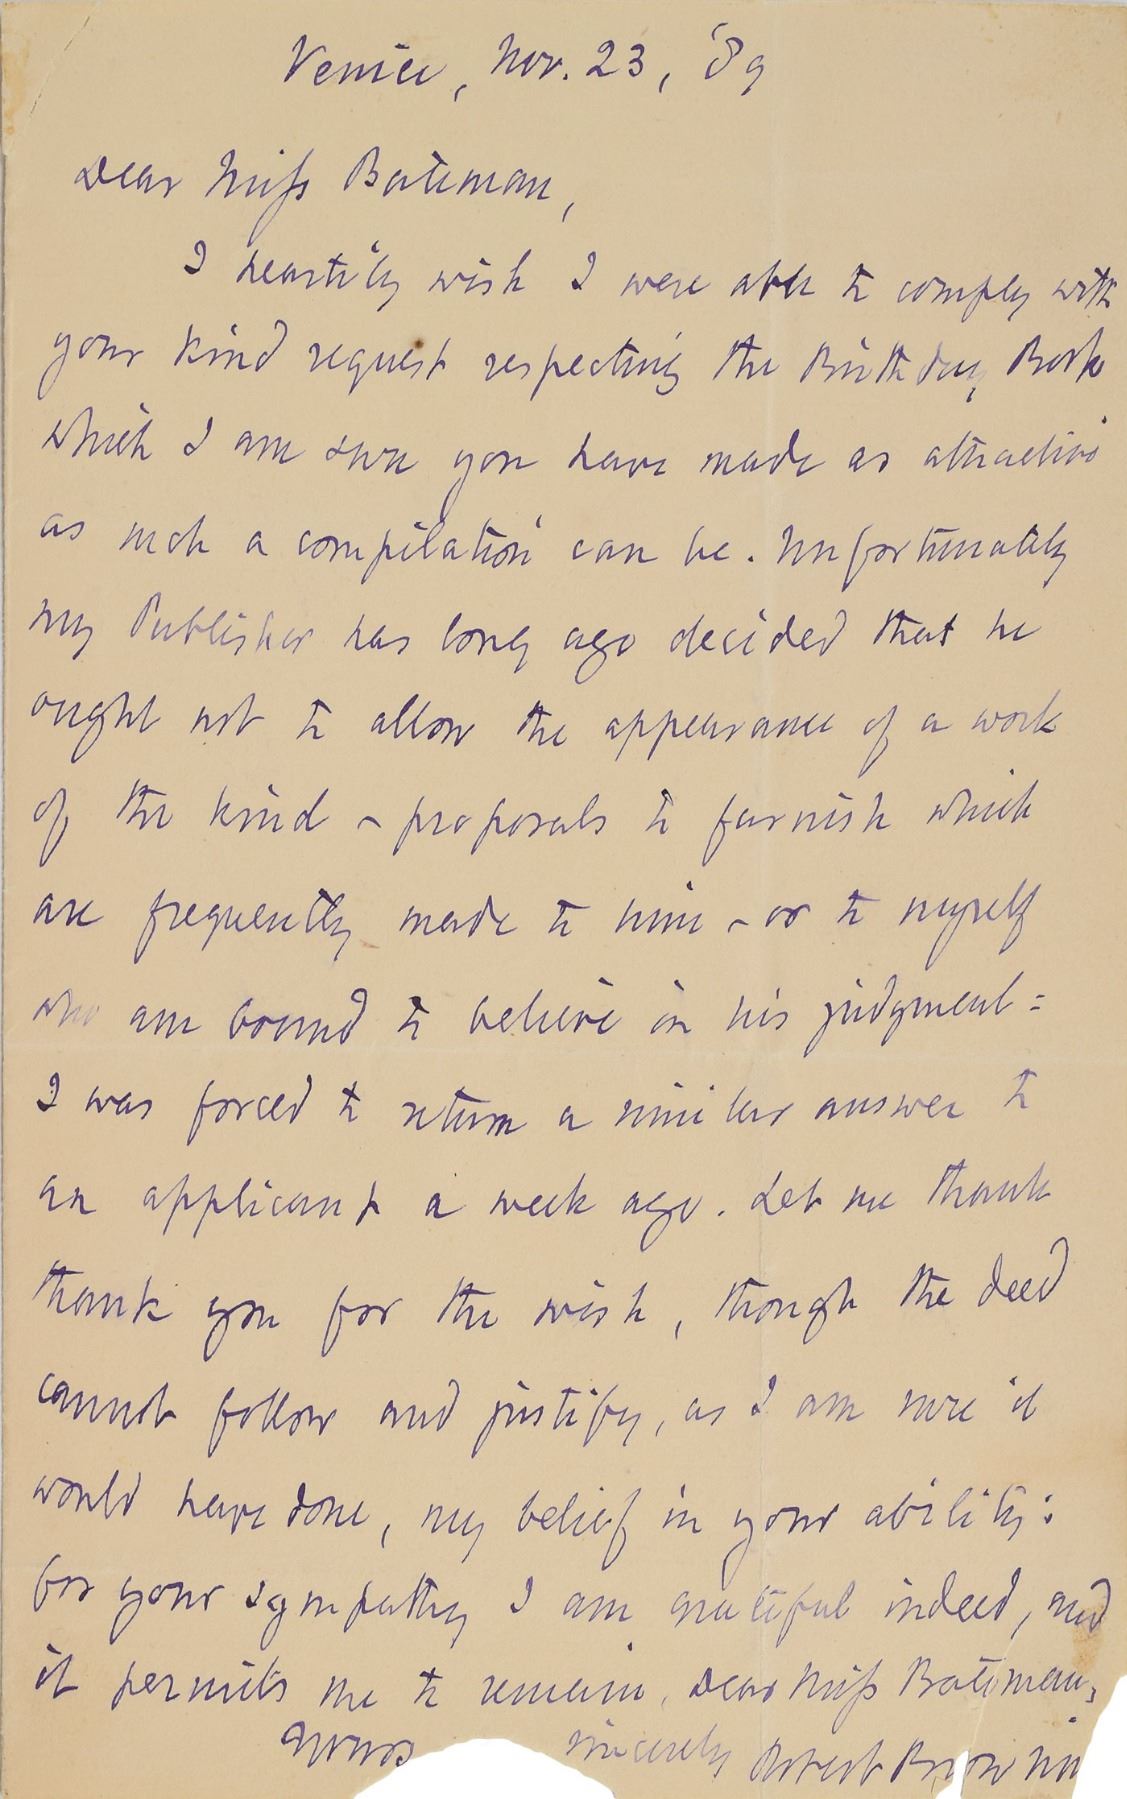 Venice, Nov. 23, '89
Dear Miss Bateman,
I heartily wish I were able to comply with
your kind request respecting the Birthday Book
which I am sure you have made as attractive
as such a compilation can be. Unfortunately
my Publisher has long ago decided that he
ought not to allow the appearance of a work
of the kind - proposals to furnish which
are frequently made to him - or to myself
who am bound to believe in his judgment:
I was forced to return a similar answer to
an applicant a week ago. Let me thank
thank you for the wish, though the deed
cannot follow and justify, as I am sure it
would have done, my belief in your ability:
for your sympathy I am grateful indeed, and
it permits me to remain, Dear Miss Bateman,
Yours sincerely Robert Brownin